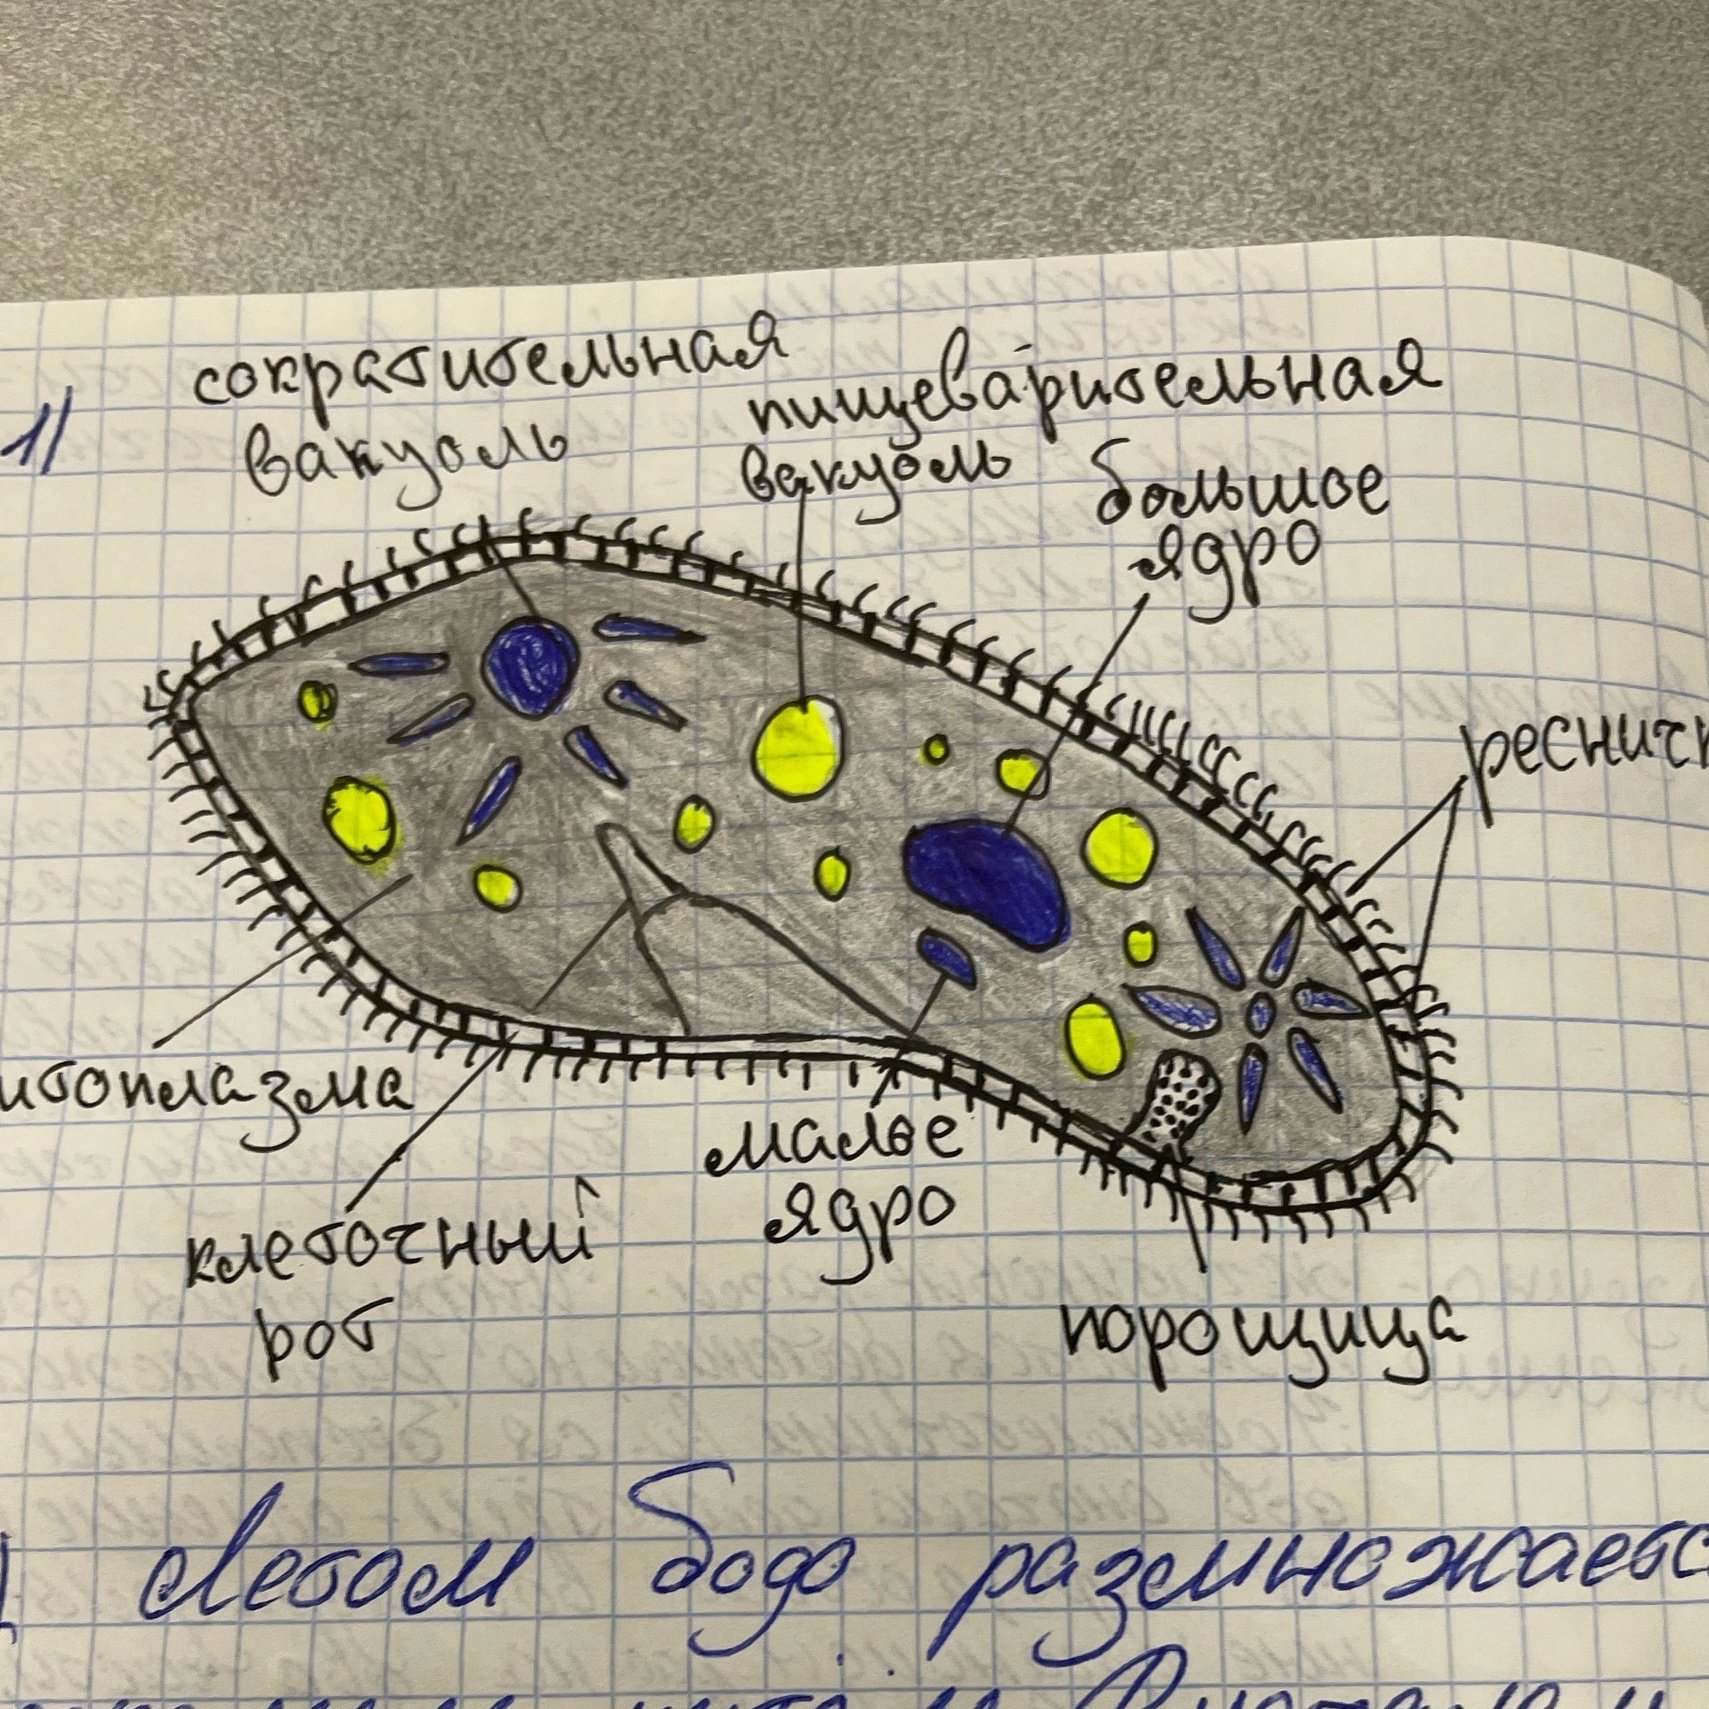 1)
сократительная
вакуоль
пищеварительная
вакуоль
большое
ядро
ресничк
итоплазма
клеточный
рот
малое
ядро
порошица
Летом бодо размножаетс